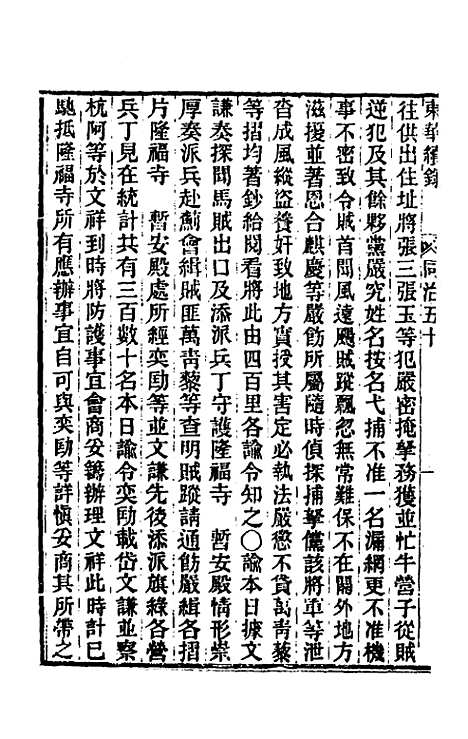 東華續錄　同治五十
往供出住址將張三張玉等犯嚴密掩拏務獲並忙牛營子從賊
逆犯及其餘夥黨嚴究姓名按名弋捕不准一名漏網更不准機
事不密致令賊首聞風遠颺賊蹤飄忽無常難保不在關外地方
滋擾並著恩合麒慶等嚴飭所屬隨時偵探捕拏儻該將軍等泄
沓成風縱盜養奸致地方實授其害定必執法嚴懲不貸萬青藜
等摺均著鈔給閱看將此由四百里各諭令知之〇諭本日據文
謙奏探聞馬賊出口及添派兵丁守護隆福寺　暫安殿情形崇
厚奏派兵赴薊會緝賊匪萬靑黎等查明賊蹤請通飭嚴緝各摺
片隆福寺　暫安殿處所經奕劻等並文謙先後添派旗綠各營
兵丁見在統計共有三百數十名本日諭令奕劻載岱文謙並察
杭阿等於文祥到時將防護事宜會商妥籌辦理文祥此時計已
馳抵隆福寺所有應辦事宜自可與奕劻等詳愼妥商其所帶之